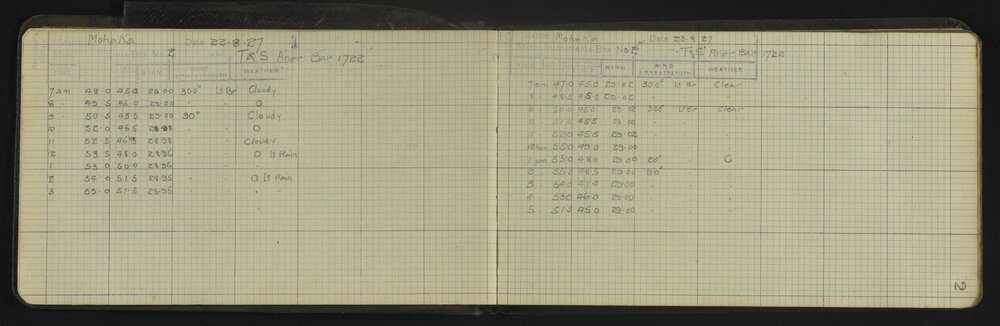 Station Mohaka Date 22.8.27
Instruments Box No 2 T&S Aner Bar 1722
TIME BARM WIND DIRN & STRENGTH WEATHER
7am 48.0 45.0 29.00 300° Lt Br Cloudy
8 " 49.5 46.0 29.00 " " O
9 " 50.5 45.5 29.00 90° " Cloudy
10 52.0 46.5 28.98 " " O
11 52.5 46.5 28.98 " " Cloudy
12 53.5 48.0 28.96 " " O Lt Rain
1 53.0 50.0 28.96 " " "
2 54.0 51.5 28.95 " " O Lt Rain
3 53.0 51.5 28.95 " " " "
Station Mohaka Date 23.8.27
Instruments Box No 2 T&S Aner Bar 1722
TIME BARM WIND DIRN & STRENGTH WEATHER
7am 47.0 45.0 29.02 300° Lt Br Clear
8 " 48.5 45.0 29.02 " " "
9 " 50.0 45.0 29.02 320° Lt Br Clear
10 " 51.0 45.5 29.00 " " "
11 " 52.0 45.5 29.02 " " "
12 55.0 49.0 29.00 " " "
1pm 55.0 48.0 29.00 20° " C
2 " 55.0 48.5 29.00 90° " "
3 " 54.0 47.0 29.00 " " "
4 " 53.0 46.0 29.00 " " "
5 " 51.5 45.0 29.00 " " "
2